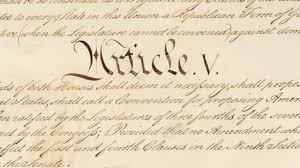 to every State in this Union a Republican Form of G
tive (when the Legislature cannot be convened) against dom
Article. V.
ds of both Houses shall deem it necessary, shall propo
al States, shall call a Convention for proposing Amen
n ratified by the Legislatures of three fourths of the sever
d by the Congress; Provided that no Amendment w
ect the first and fourth Clauses in the Ninth Sect
the Senate.